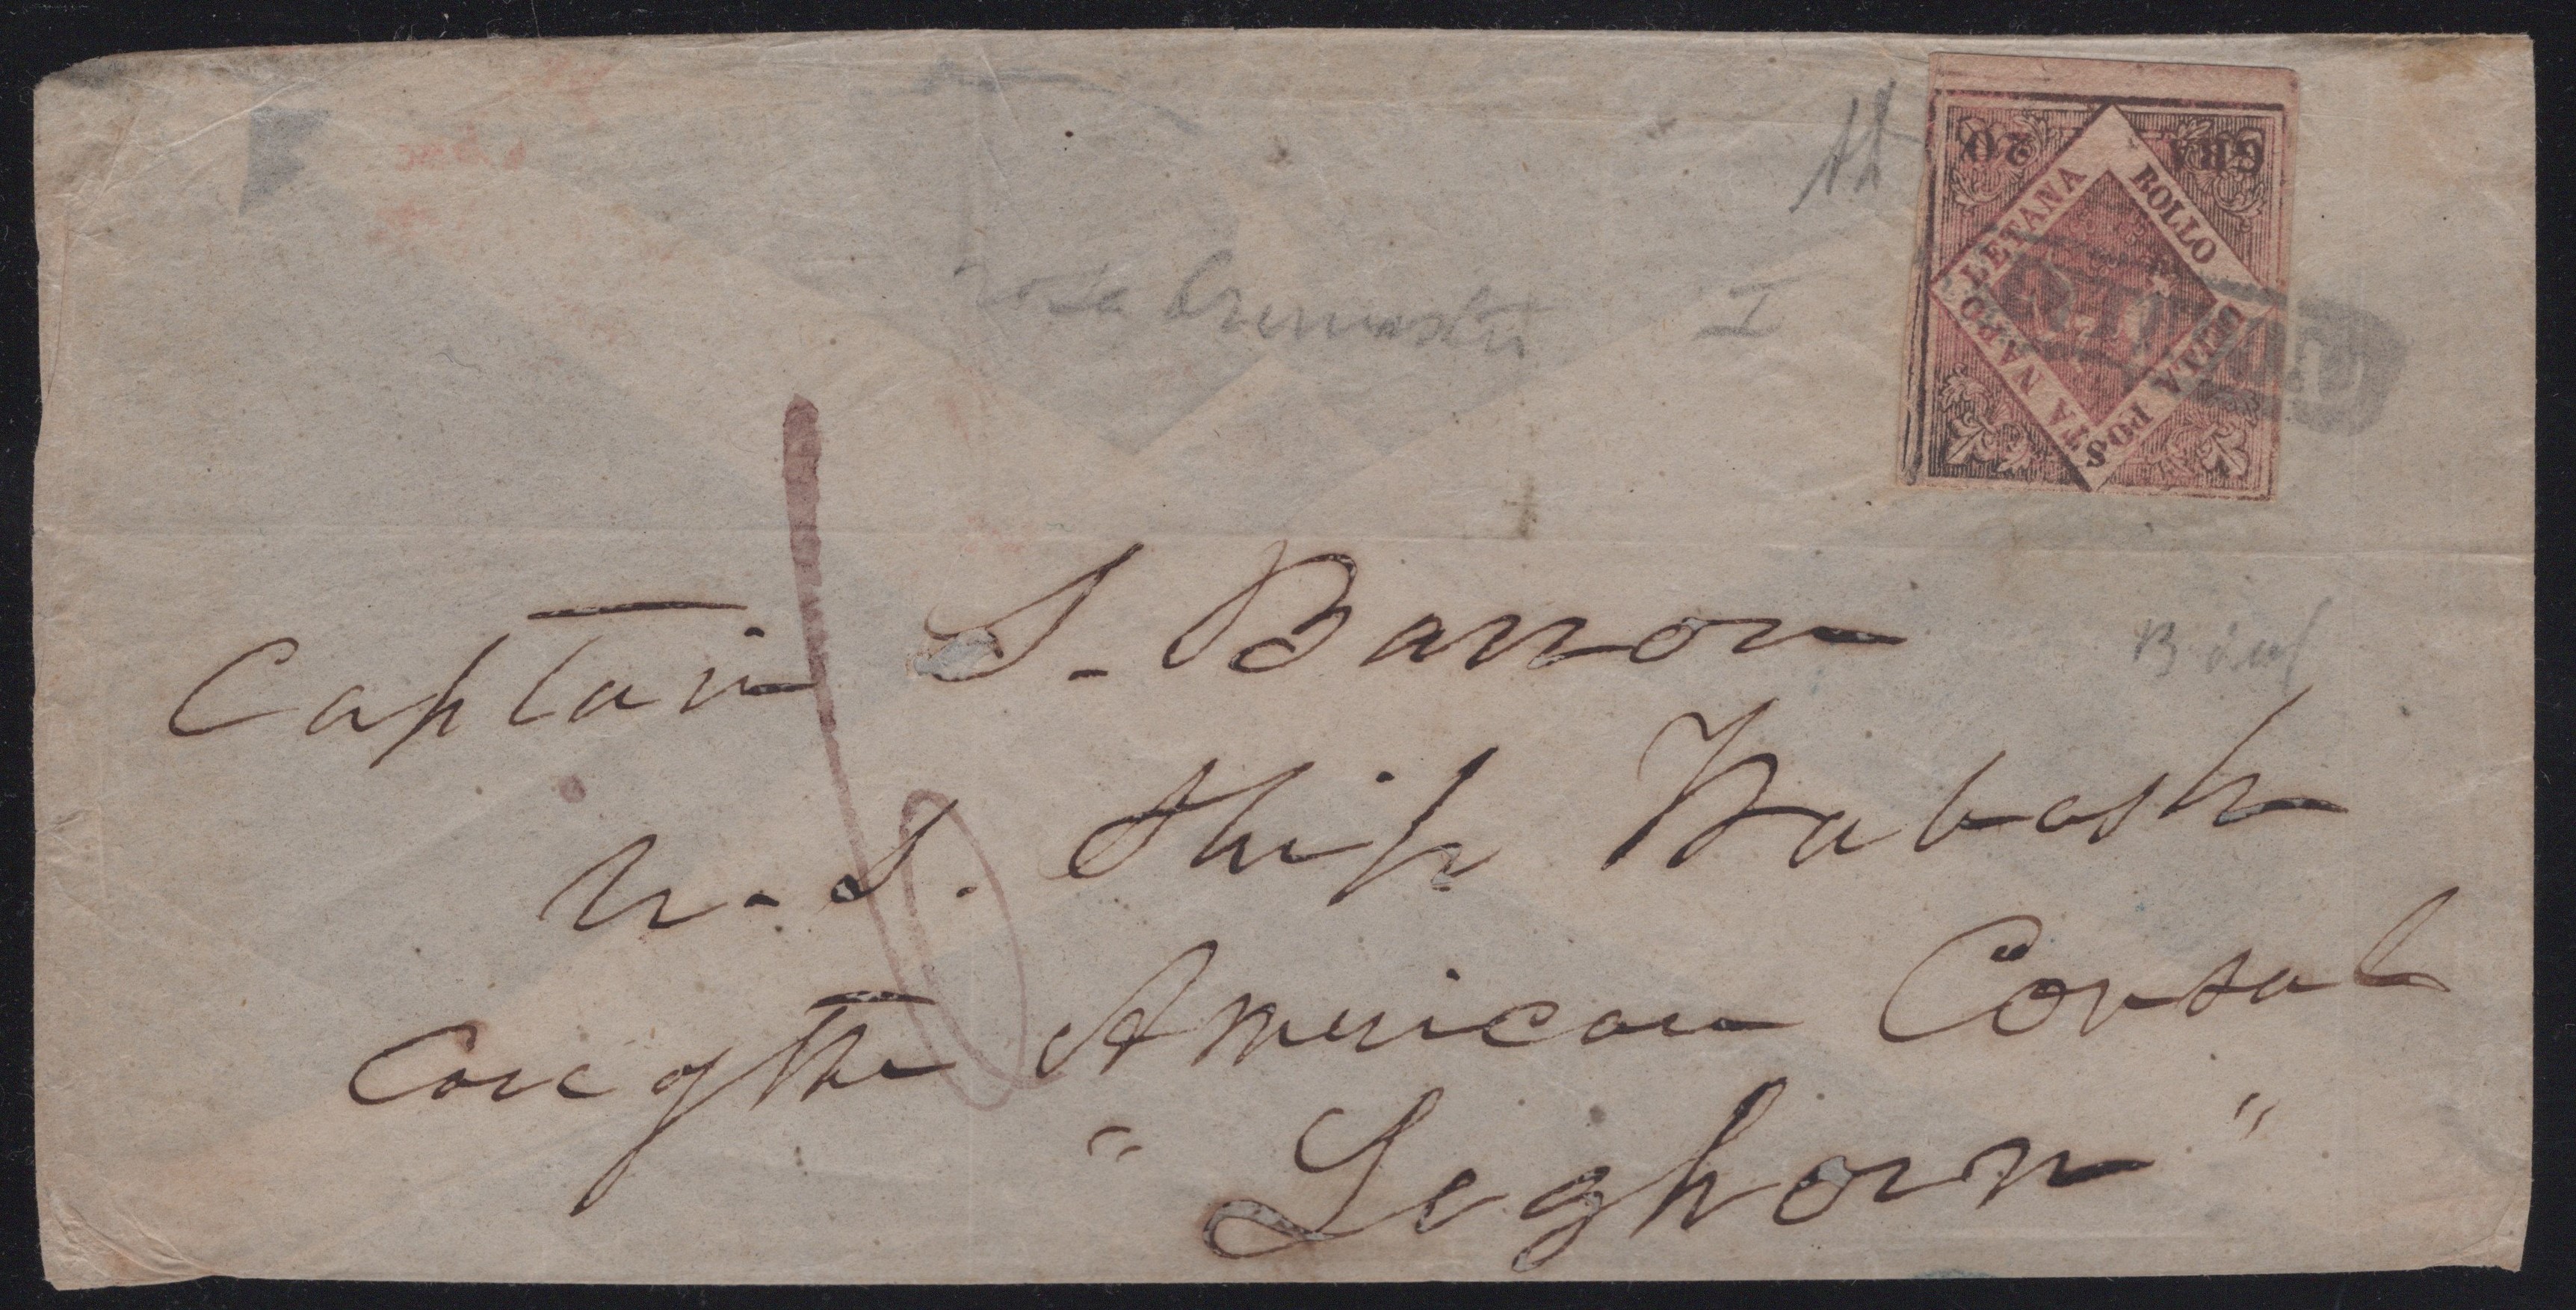 GRA 20
BOLLO
DELLA POSTA NAPOLETANA
I
Captain S. Barron
U. S. Ship Wabash
Care of the American Consul
"Leghorn"